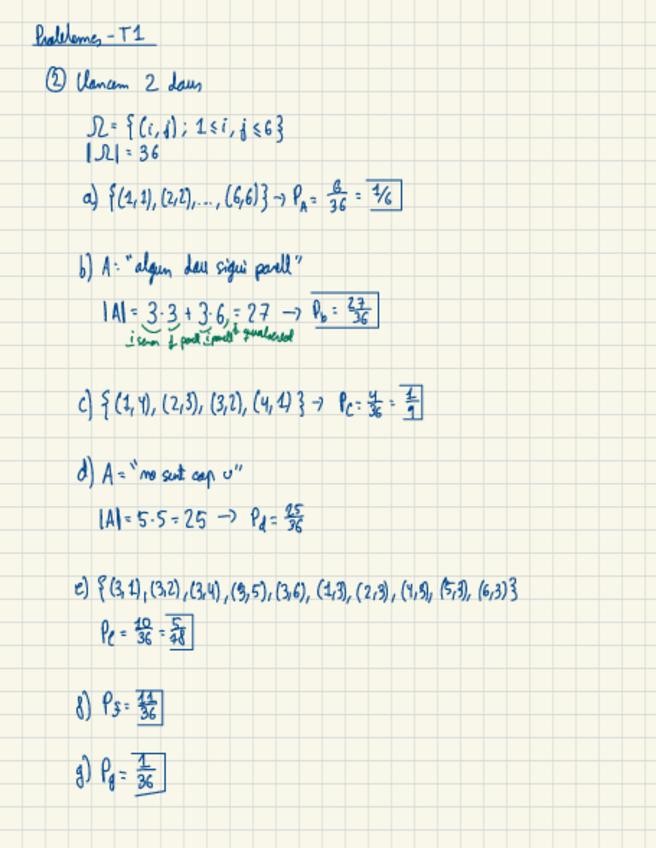 Problemes - T1
② Llancem 2 daus
Ω = {(i,j); 1≤i, j≤6}
|Ω| = 36
a) {(1,1), (2,2),..., (6,6)} → P_A = 6/36 = 1/6
b) A: "algun dau sigui parell"
|A| = 3·3 + 3·6 = 27 → P_b = 27/36
i senar j parell i parell j qualsevol
c) {(1,4), (2,3), (3,2), (4,1)} → P_C = 4/36 = 1/9
d) A = "no surt cap u"
|A| = 5·5 = 25 → P_d = 25/36
e) {(3,1), (3,2), (3,4), (3,5), (3,6), (1,3), (2,3), (4,3), (5,3), (6,3)}
P_e = 10/36 = 5/18
f) P_f = 11/36
g) P_g = 1/36